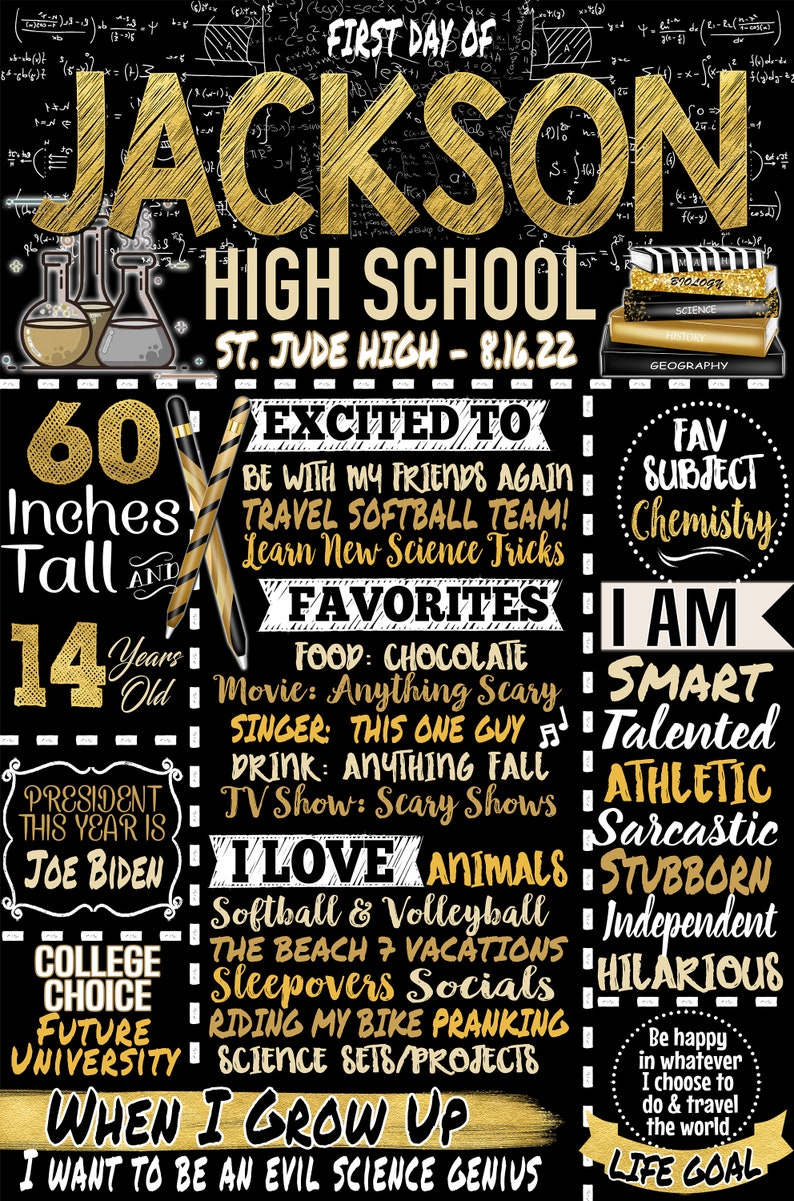 FIRST DAY OF
JACKSON
HIGH SCHOOL
ST. JUDE HIGH - 8.16.22
MATH
BIOLOGY
SCIENCE
HISTORY
GEOGRAPHY
60
Inches
Tall AND
14 Years
Old
PRESIDENT
THIS YEAR IS
JOE BIDEN
COLLEGE
CHOICE
FUTURE
UNIVERSITY
EXCITED TO
BE WITH MY FRIENDS AGAIN
TRAVEL SOFTBALL TEAM!
Learn New Science Tricks
FAVORITES
FOOD: CHOCOLATE
Movie: Anything Scary
SINGER: THIS ONE GUY
DRINK: ANYTHING FALL
TV Show: Scary Shows
I LOVE ANIMALS
Softball & Volleyball
THE BEACH 7 VACATIONS
Sleepovers Socials
RIDING MY BIKE PRANKING
SCIENCE SETS/PROJECTS
FAV
SUBJECT
Chemistry
I AM
SMART
Talented
ATHLETIC
Sarcastic
STUBBORN
Independent
HILARIOUS
Be happy
in whatever
I choose to
do & travel
the world
LIFE GOAL
WHEN I GROW UP
I WANT TO BE AN EVIL SCIENCE GENIUS